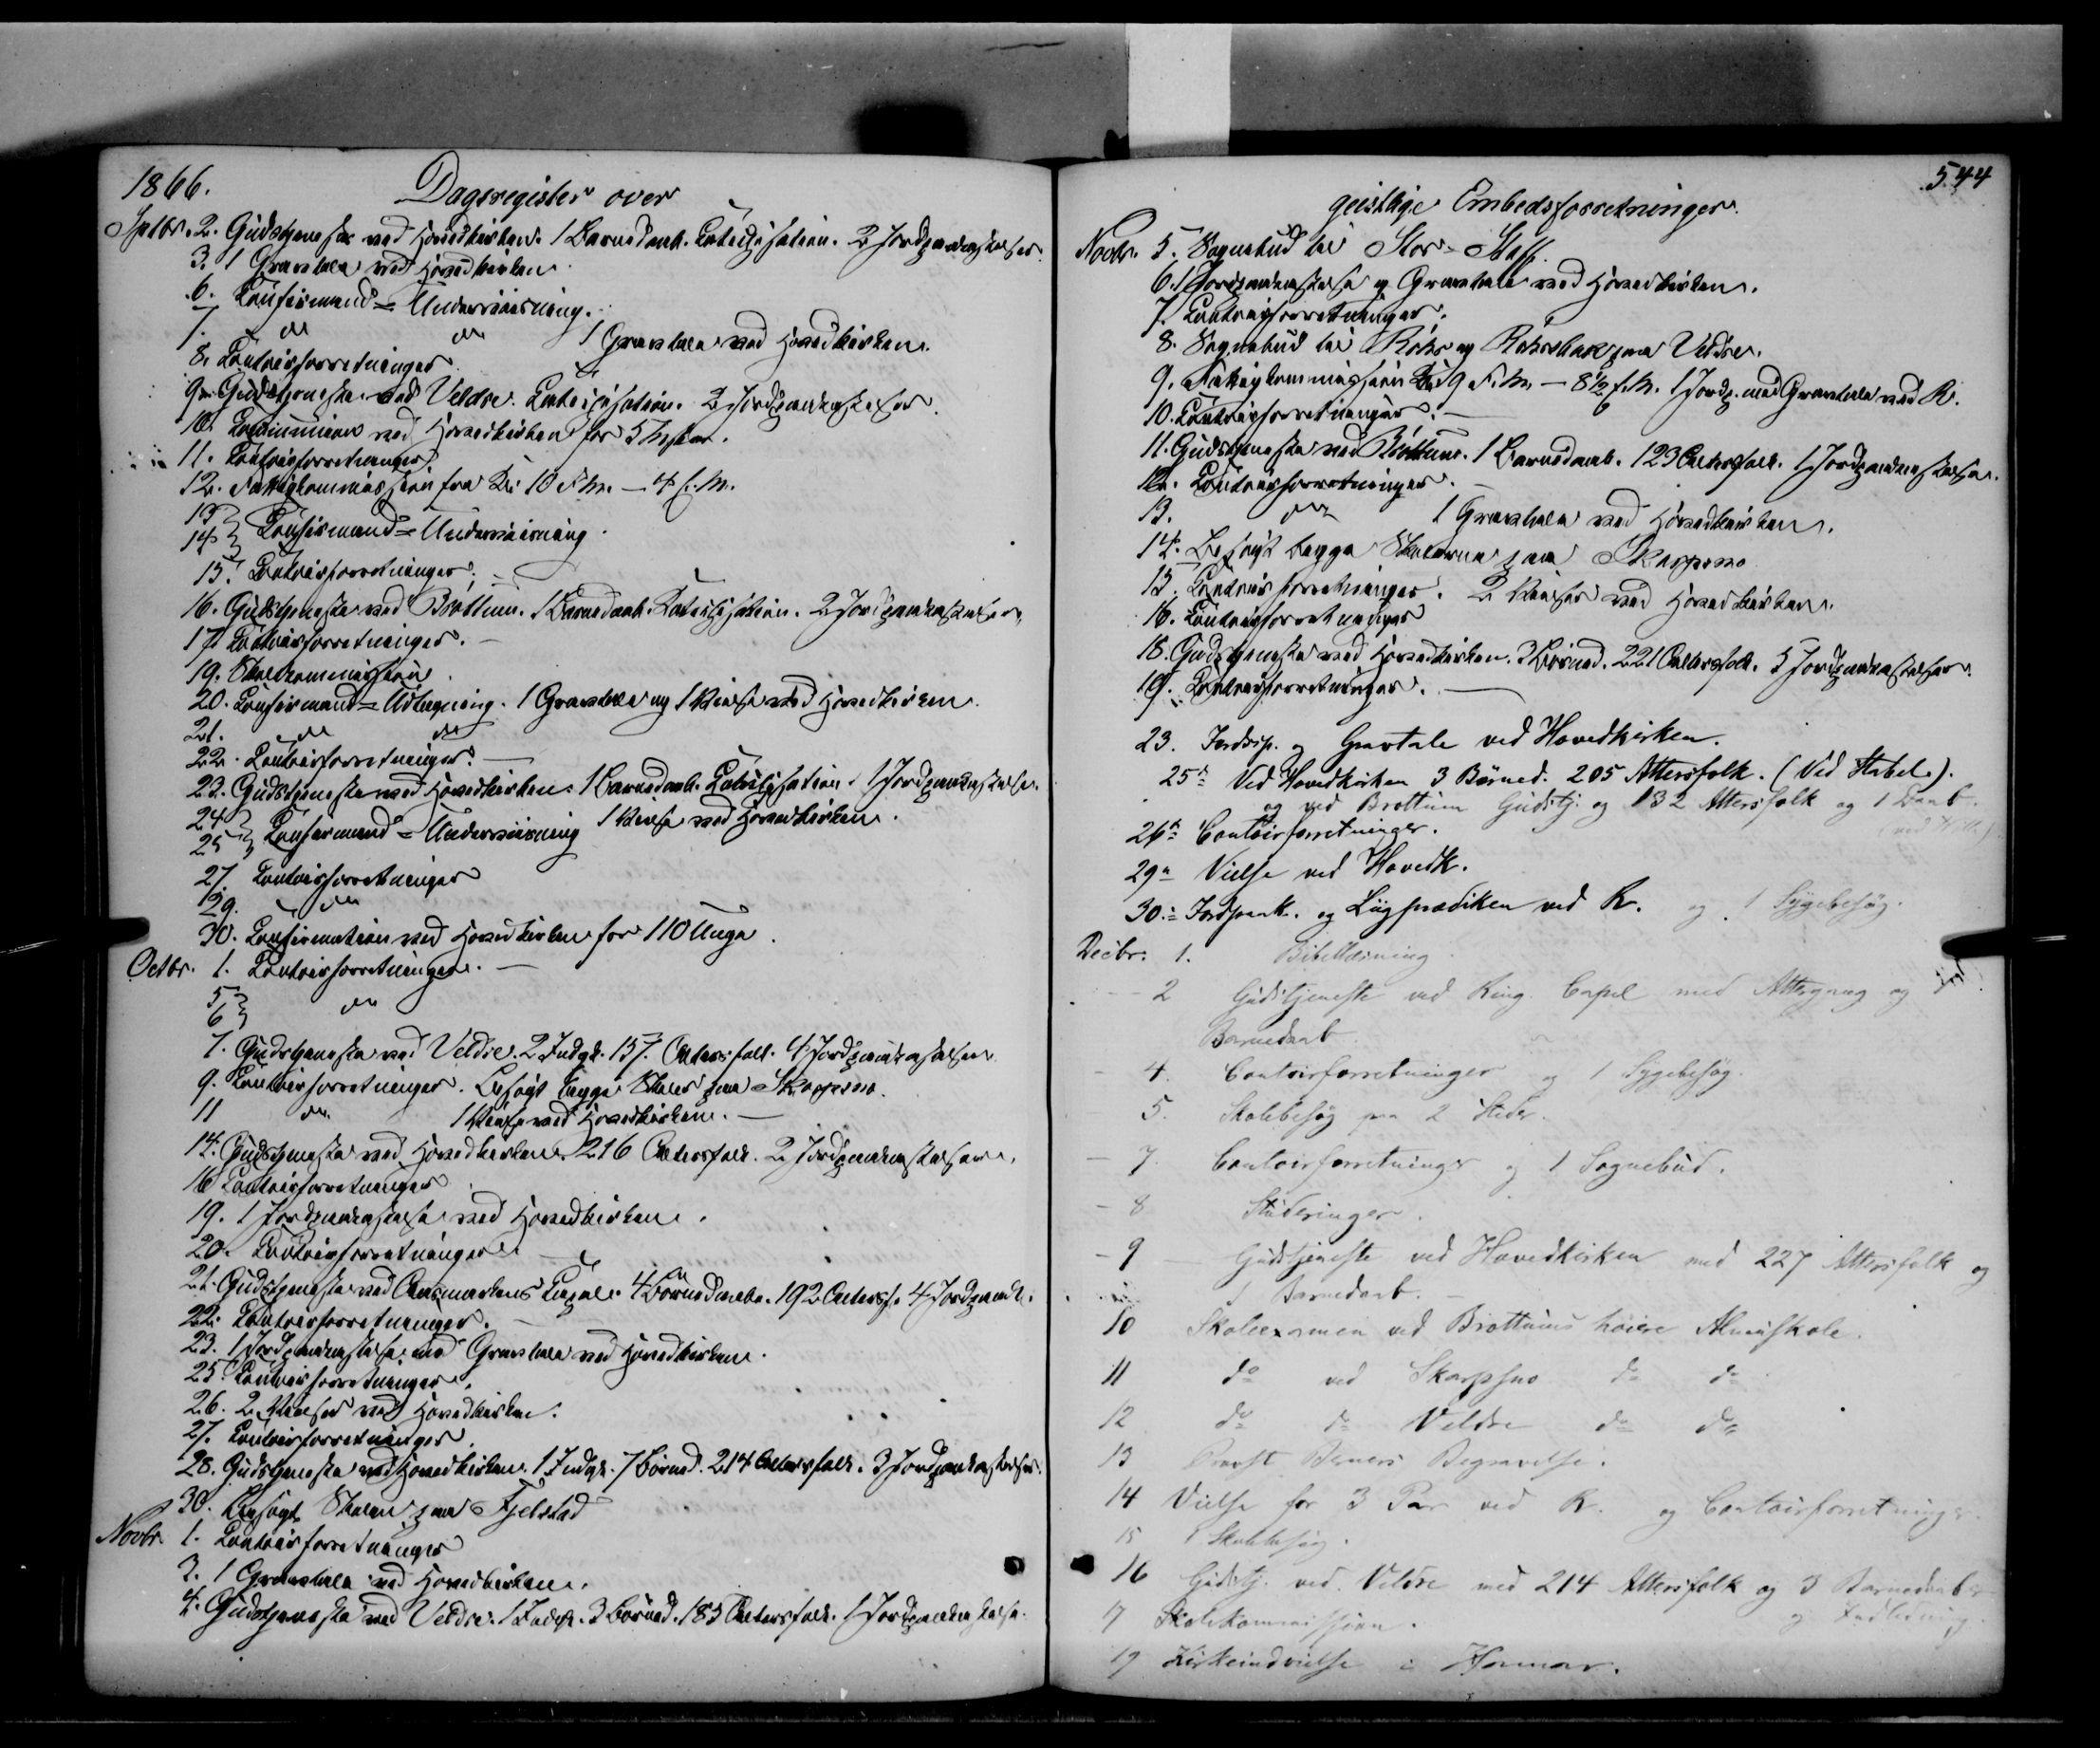 1866.
Dagsregister over
Septbr. 2. Gudstjeneste ved Hovedkirken. 1 Barnedaab. Catechisation. 2 Jordpaakastelser.
3. 1 Gravtale ved Hovedkirken
6. Confirmand-Underviisning.
7. do do 1 Gravtale ved Hovedkirken.
8. Contoirforretninger
9. Gudstjeneste ved Veldre. Catechisation. 2 Jordpaakastelser.
10. Communion ved Hovedkirken for 5
11. Contoirforretninger
12. Fattigkommission fra Kl. 10 F.M. — 4 E.M.
13 }
14 } Confirmand-Underviisning.
15. Contoirforretninger. —
16. Gudstjeneste ved Brøttum. 1 Barnedaab. Catechisation. 2 Jordpaakastelser.
17. Contoirforretninger. —
19. Skolecommission
20. Confirmand-Udtagning. 1 Gravtale og 1 Vielse ved Hovedkirken.
21. do do
22. Contoirforretninger. —
23. Gudstjeneste ved Hovedkirken. 1 Barnedaab. Catechisation. 1 Jordpaakastelse.
24 }
25 } Confirmand-Underviisning 1 Vielse ved Hovedkirken.
27. Contoirforretninger
29. do
30. Confirmation ved Hovedkirken for 110 Unge.
Octbr. 1. Contoirforretninger. —
5 }
6 } do
7. Gudstjeneste ved Veldre. 2 Indgk. 137. Altersfolk. 4 Jordpaakastelser
9. Contoirforretninger. Besøgt begge Skoler paa Skarpsno.
11 do 1 Vielse ved Hovedkirken. —
14. Gudstjeneste ved Hovedkirken. 216 Altersfolk. 2 Jordpaakastelser.
16 Contoirforretninger
19. 1 Jordpaakastelse ved Hovedkirken.
20. Contoirforretninger. —
21. Gudstjeneste ved Aasmarkens Capel. 4 Barnedaab. 192 Altersf. 4 Jordpaak.
22. Contoirforretninger. —
23. 1 Jordpaakastelse med Gravtale ved Hovedkirken.
25. Contoirforretninger.
26. 2 Vielser ved Hovedkirken.
27. Contoirforretninger.
28. Gudstjeneste ved Hovedkirken. 1 Indgk. 7 Børned. 214 Altersfolk. 3 Jordpaakastelser.
30. Besøgt Skolen paa Fjelstad
Novbr. 1. Contoirforretninger
3. 1 Gravtale ved Hovedkirken.
4. Gudstjeneste ved Veldre. 1 Indgk. 3 Børned. 183 Altersfolk. 1 Jordpaakastelse.
544
geistlige Embedsforretninger.
Novbr. 5. Sognebud til Stor-Staff.
6. 1 Jordpaakastelse og Gravtale ved Hovedkirken.
7. Contoirforretninger.
8. Sognebud til Røhr og Røhrsbak paa Veldre.
9. Fattigkommission Kl. 9 F.M. — 8½ E.M. 1 Jordp. med Gravtale ved R.
10. Contoirforretninger. —
11. Gudstjeneste ved Brøttum. 1 Barnedaab. 123 Altersfolk. 1 Jordpaakastelse.
12. Contoirforretninger. —
13. do 1 Gravtale ved Hovedkirken.
14. Besøgt begge Skolerne paa Skarpsno
15. Contoirforretninger. 2 Vielser ved Hovedkirken.
16. Contoirforretninger
18. Gudstjeneste ved Hovedkirken. 3 Børned. 221 Altersfolk. 5 Jordpaakastelser.
19. Contoirforretninger. —
23. Jordsp. og Gravtale ved Hovedkirken.
25de Ved Hovedkirken 3 Børned. 205 Altersfolk. (Ved Stabel.).
og ved Brøttum Gudstj. og 132 Altersfolk og 1 Daab.
26de Contoirforretninger.
29de Vielse ved Hovedk.
30. Jordpaak. og Liigprædiken ved R. og 1 Sygebesøg.
Decbr. 1. Bibellæsning.
2 Gudstjeneste ved Ring. Capel med Altergang og
Barnedaab
4. Contoirforretninger og 1 Sygebesøg.
5. Skolebesøg paa 2 Steder.
7. Contoirforretninger og 1 Sognebud.
8 Studeringer.
9 — Gudstjeneste ved Hovedkirken med 227 Altersfolk og
1 Barnedaab. —
10 Skoleexamen ved Brøttums høiere Almuskole.
11 do ved Skarpsno do do
12 do do Veldre do do
13 Provst Begravelse.
14 Vielse for 3 Par ved R. og Contoirforretninger.
15 1 Skolebesøg.
16 Gudstj. ved Veldre med 214 Altersfolk og 3 Barnedaab
og Indledning.
17 Skolekommission.
19 Kirkeindvielse i Hamar.